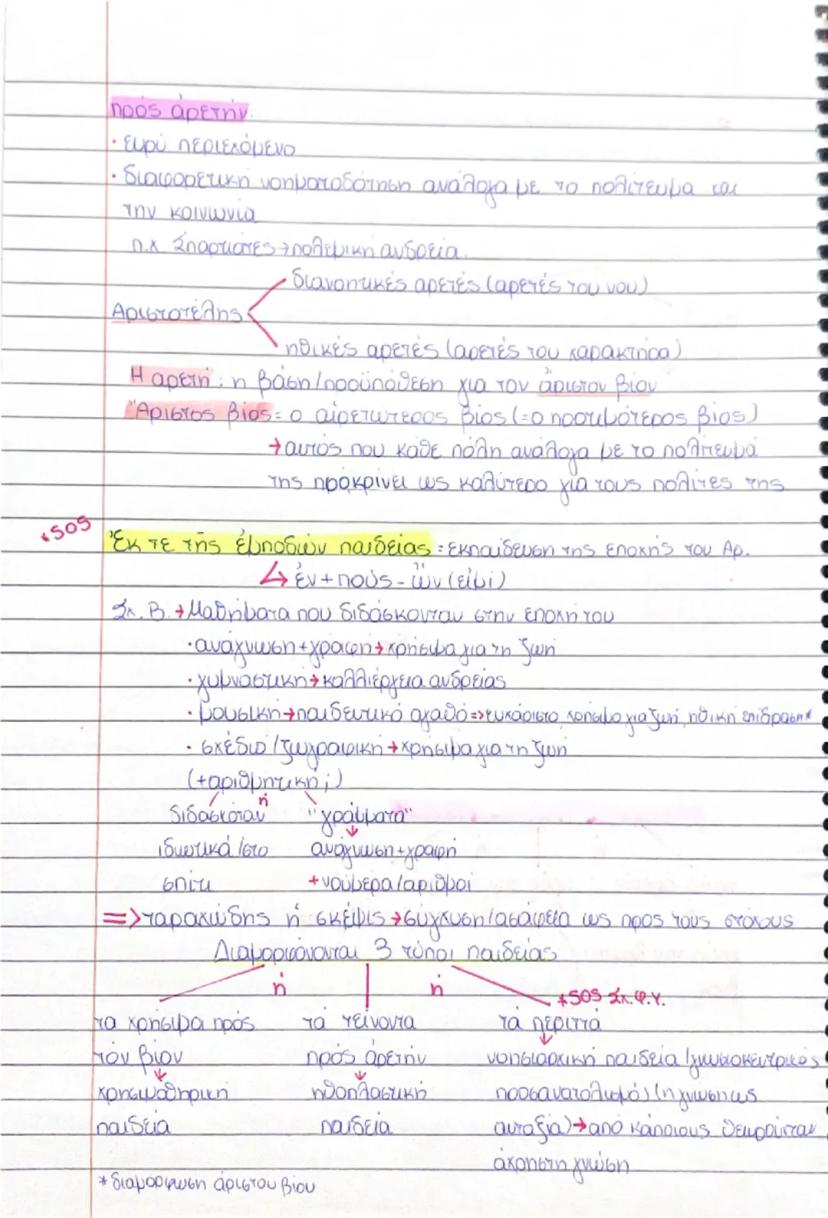 πρὸς ἀρετήν
· ευρύ περιεχόμενο
· διαφορετική νοηματοδότηση ανάλογα με το πολίτευμα και
την κοινωνία
π.χ Σπαρτιάτες → πολεμική ανδρεία.
διανοητικές αρετές (αρετές του νου)
Αριστοτέλης
ηθικές αρετές (αρετές του χαρακτήρα)
Η αρετή: η βάση/προϋπόθεση για τον ἄριστον βίον
Ἄριστος βίος = ο αἱρετώτερος βίος (= ο προτιμότερος βίος)
→ αυτός που κάθε πόλη ανάλογα με το πολίτευμά
της προκρίνει ως καλύτερο για τους πολίτες της
*SOS
Ἔκ τε τῆς ἐμποδὼν παιδείας = εκπαίδευση της εποχής του Αρ.
↳ ἐν + πούς - ὤν (εἰμί)
Σχ. Β. → Μαθήματα που διδάσκονταν στην εποχή του
· ανάγνωση + γραφή → χρήσιμα για τη ζωή
· γυμναστική → καλλιέργεια ανδρείας
· μουσική → παιδευτικό αγαθό => ευχάριστο, χρήσιμο για ζωή, ηθική επίδραση*
· σχέδιο/ζωγραφική → χρήσιμα για τη ζωή
(+αριθμητική;)
διδασκόταν ή "γράμματα"
ιδιωτικά/στο ανάγνωση + γραφή
σπίτι + νούμερα/αριθμοί
=> ταραχώδης ἡ σκέψις → σύγχυση/ασάφεια ως προς τους στόχους
Διαμορφώνονται 3 τύποι παιδείας
ή ή *SOS Σχ. φ.γ.
τα χρήσιμα πρὸς τὰ τείνοντα τὰ περιττά
τὸν βίον πρὸς ἀρετήν νοησιαρχική παιδεία/γνωσιοκεντρικός
χρησιμοθηρική ηθοπλαστική προσανατολισμός (η γνώση ως
παιδεία παιδεία αυταξία) → από κάποιους θεωρούνταν
άχρηστη γνώση
* διαμόρφωση άριστου βίου